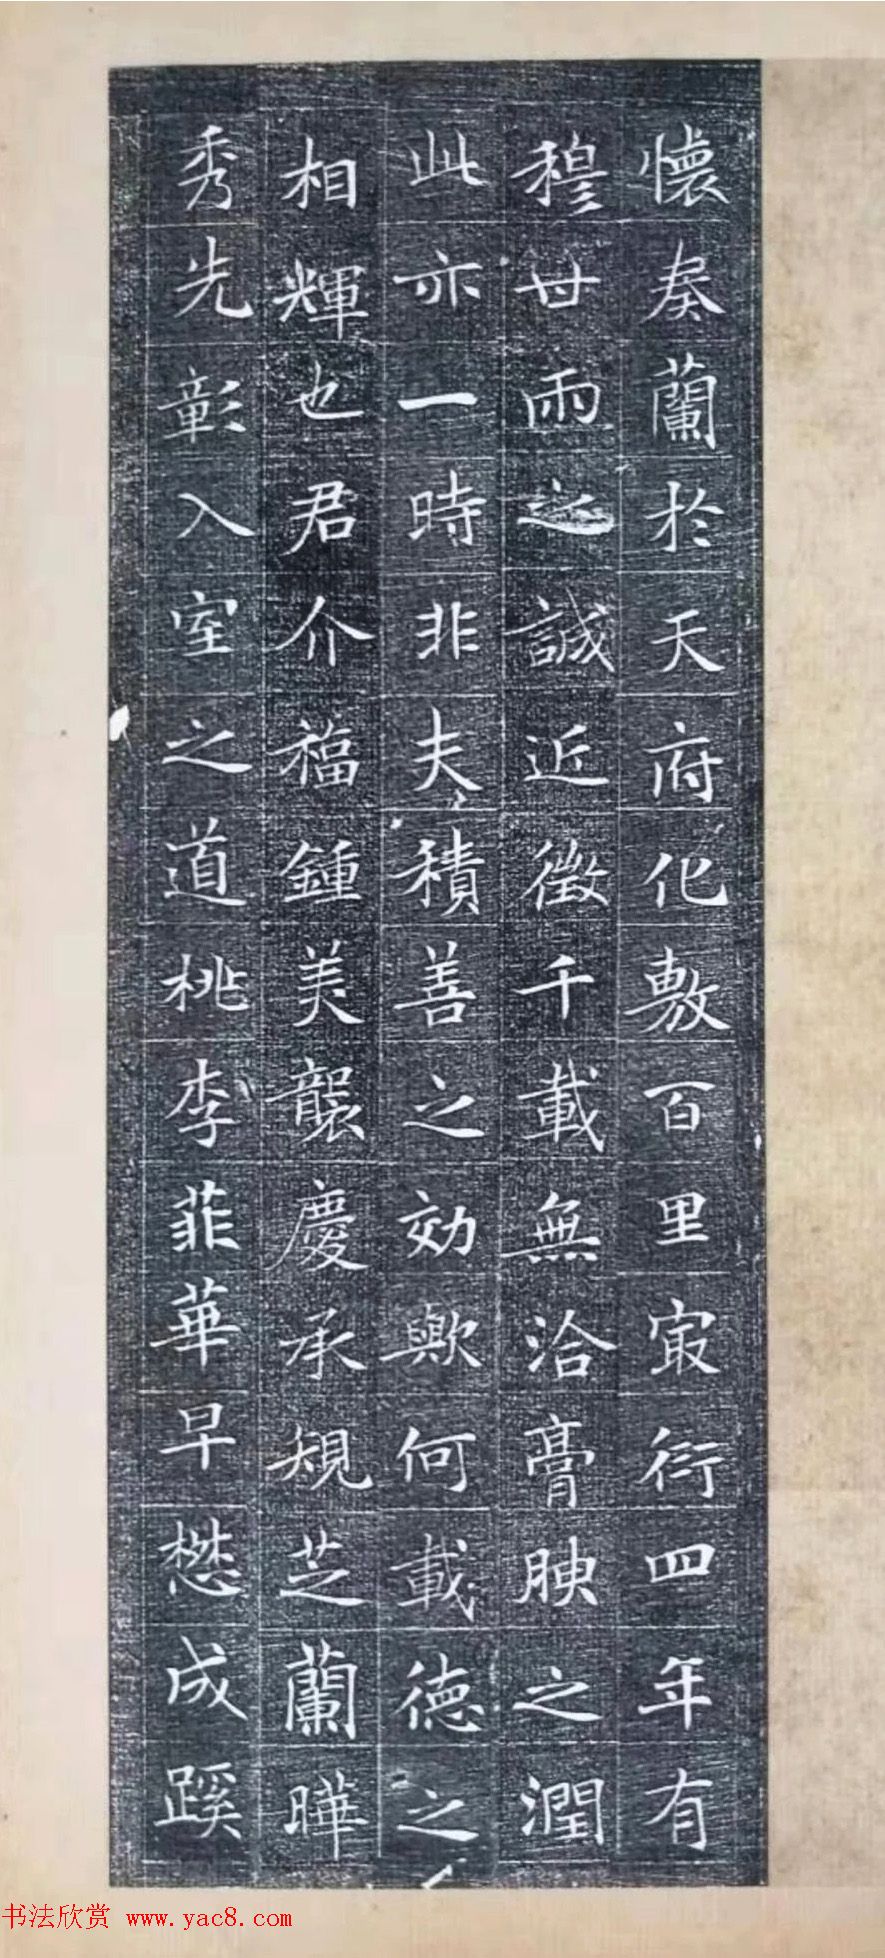 懐奏蘭於天府化敷百里冣衍四年有
穆世雨之誠近徴千載無洽膏腴之潤
此亦一時非夫積善之効歟何載徳之
相輝也君介福鍾美襲慶承規芝蘭曄
秀先彰入室之道桃李菲華早㦗成蹊
书法欣赏 www.yac8.com